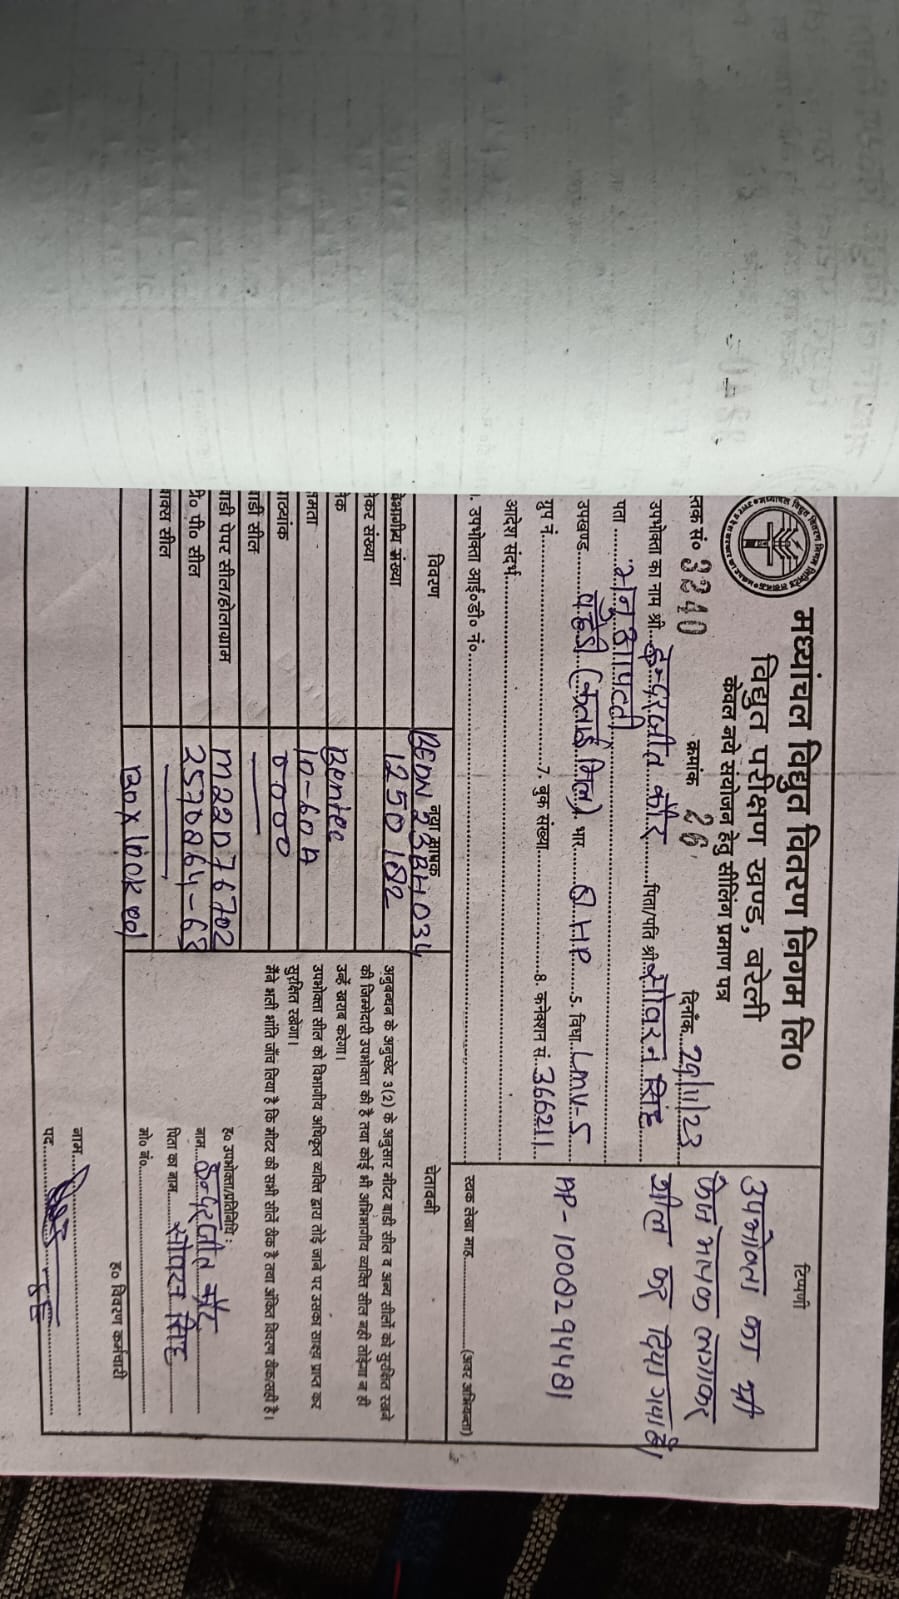 मध्यांचल विद्युत वितरण निगम लि०
विद्युत परीक्षण खण्ड, बरेली
केवल नये संयोजन हेतु सीलिंग प्रमाण पत्र
स्तक सं० 3240 क्रमांक 26 दिनाँक 29/11/23
उपभोक्ता का नाम श्री इन्दरजीत कौर पिता/पति श्री सोवरन सिंह
पता
उपखण्ड (कताई मिल) भार 8 HP 5. विधा LMV-5
ग्रुप नं. 7. बुक संख्या 8. कनेक्शन सं. 366211
आदेश संदर्भ
. उपभोक्ता आई०डी० नं०
टिप्पणी
उपभोक्ता का श्री
फेज मापक लगाकर
सील कर दिया गया है।
AP-1000294481
स्वक लेखा माह (अवर अभियन्ता)
विवरण नया मापक चेतावनी
BEDN23BH034
वेभागीय संख्या 1250182
मेकर संख्या
मेक Bentec
क्षमता 10-60A
पाठ्यांक 0000
बाडी सील —
बाडी पेपर सील/होलाग्राम M22D76702
टी० पी० सील 2570864-65
बाक्स सील —
Box locked
अनुबन्धन के अनुच्छेद 3(2) के अनुसार मीटर बाडी सील व अन्य सीलों को सुरक्षित रखने
की जिम्मेदारी उपभोक्ता की है तथा कोई भी अभिमागीय व्यक्ति सील नही तोड़ेगा न ही
उन्हें खराब करेगा।
उपभोक्ता सील को विभागीय अधिकृत व्यक्ति द्वारा तोड़े जाने पर उसका साक्ष्य प्राप्त कर
सुरक्षित रखेगा।
मैंने भली भांति जाँच लिया है कि मीटर की सभी सीलें ठीक है तथा अंकित विवरण ठीक/सही है।
ह० उपभोक्ता/प्रतिनिधि :
नाम इन्दरजीत कौर
पिता का नाम सोवरन सिंह
मो० नं०
ह० विवरण कर्मचारी
नाम
पद